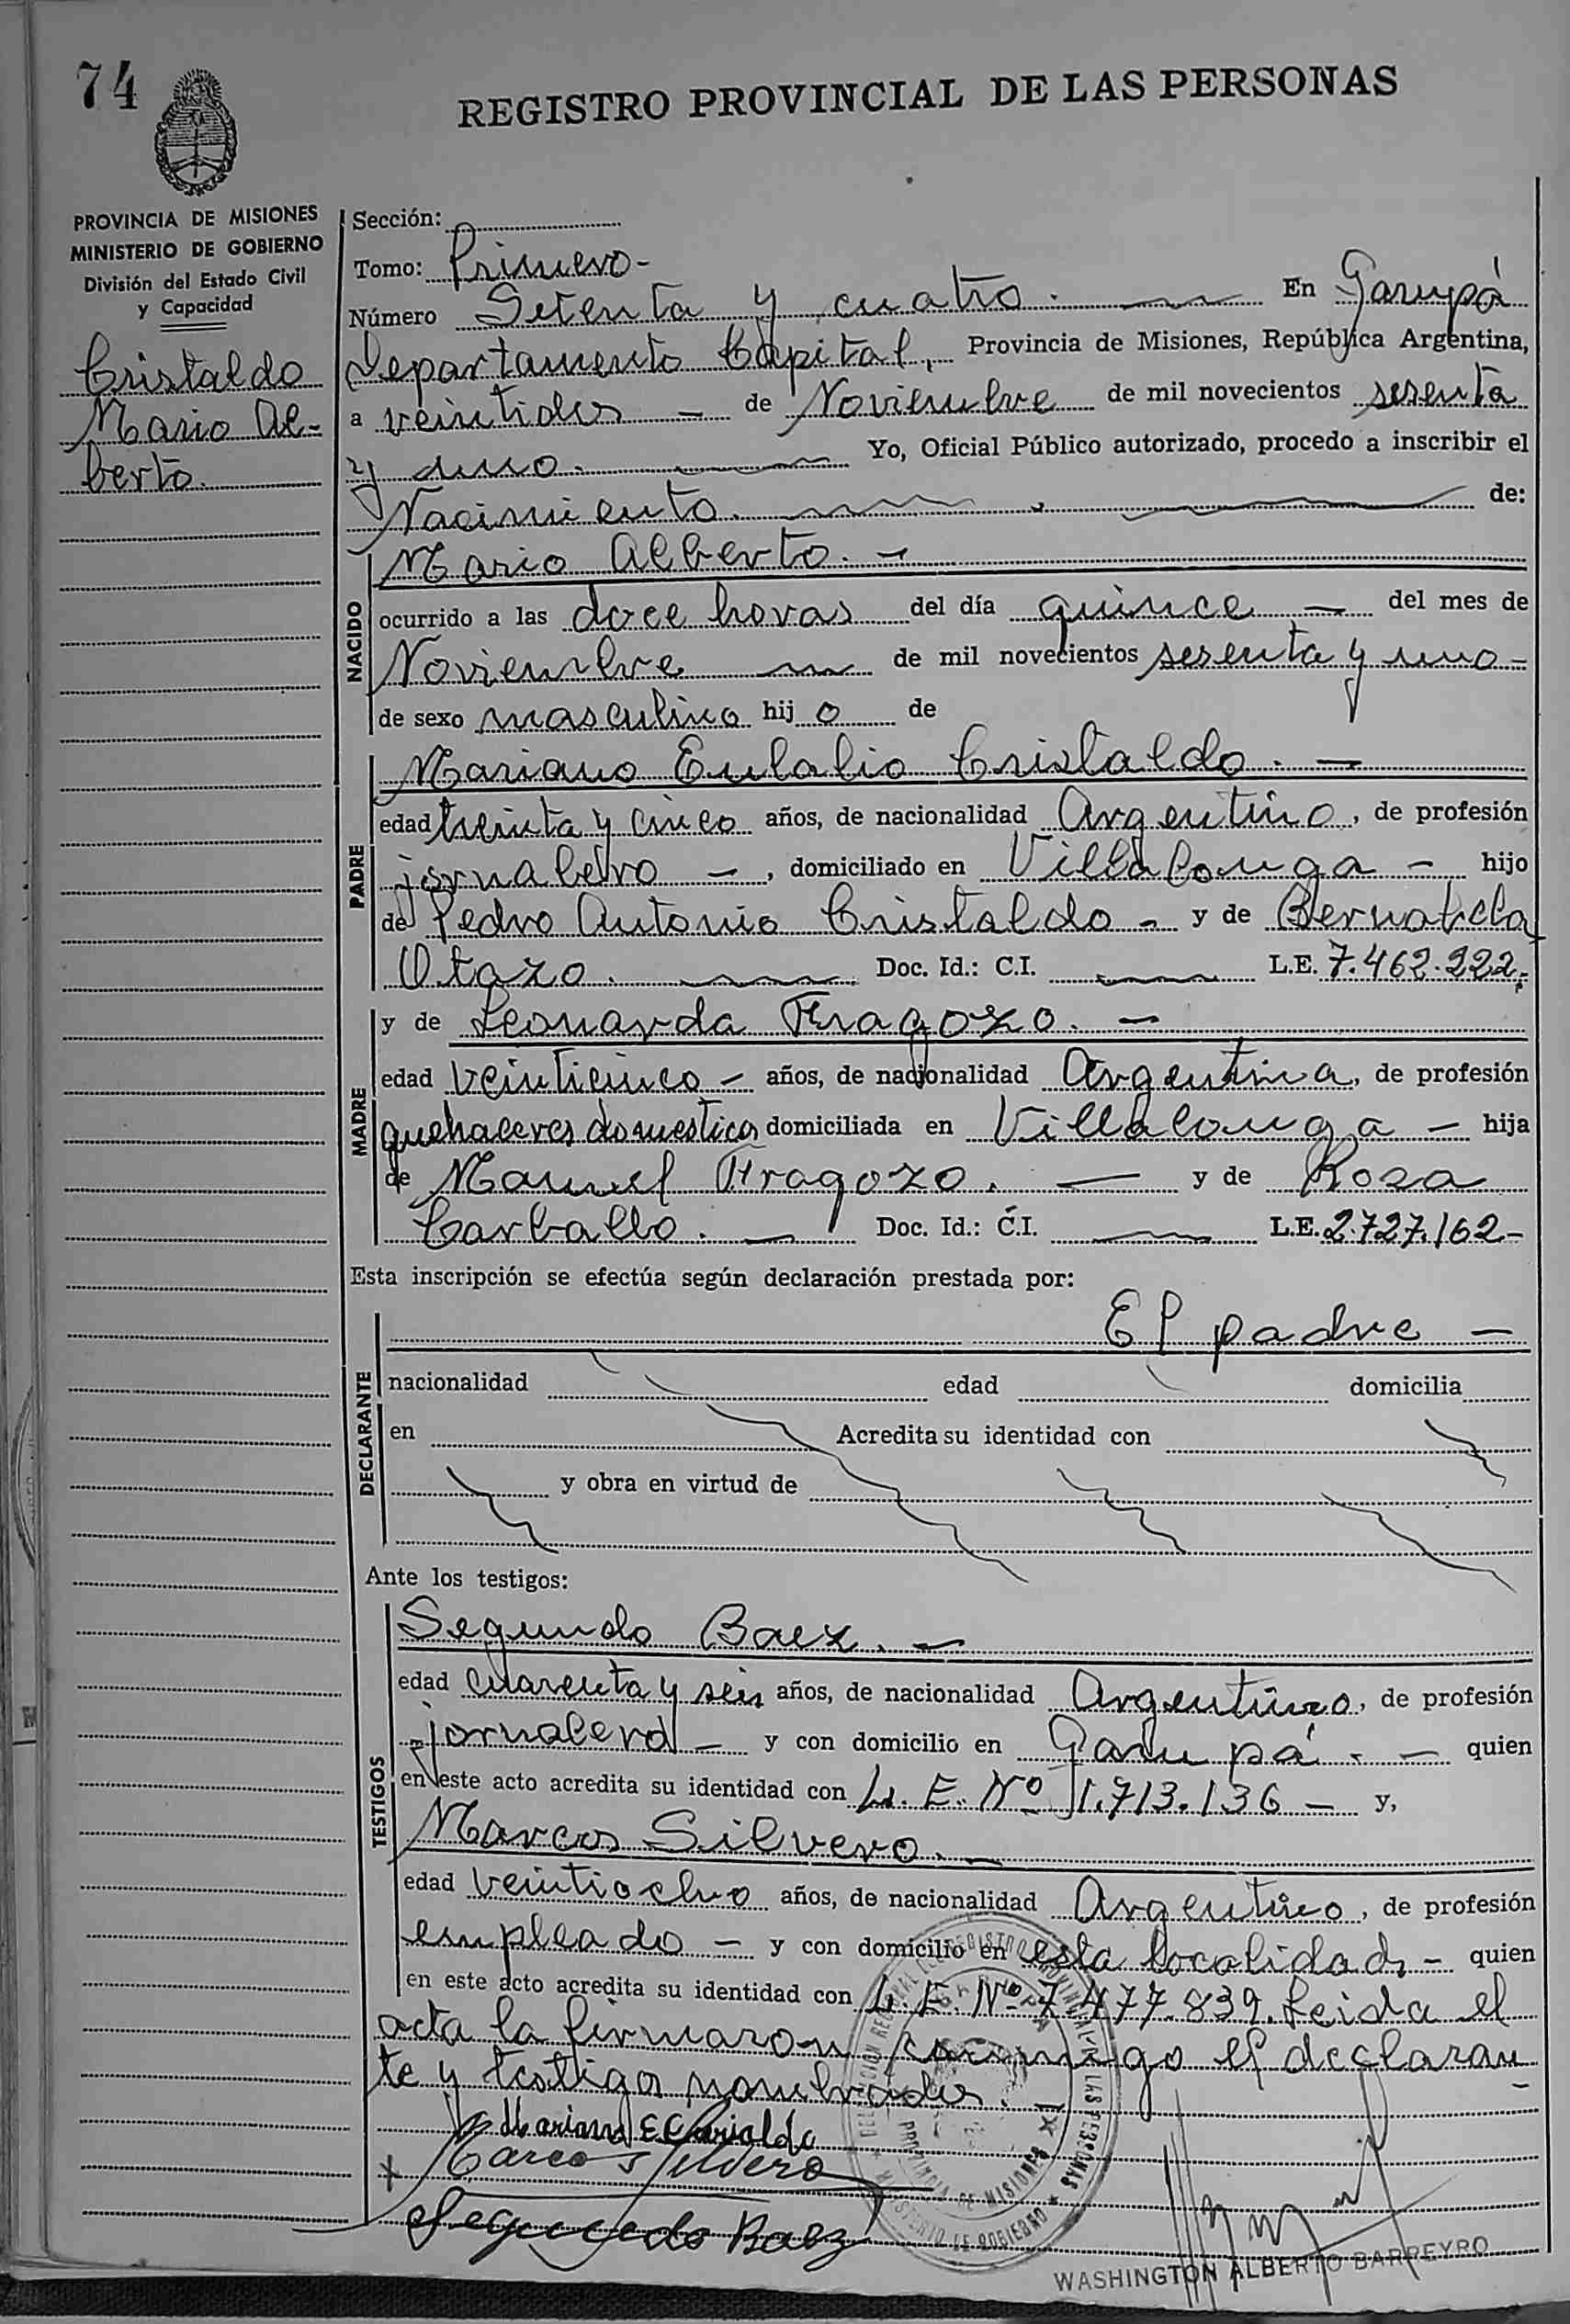 74
REGISTRO PROVINCIAL DE LAS PERSONAS
PROVINCIA DE MISIONES
MINISTERIO DE GOBIERNO
División del Estado Civil
y Capacidad
Cristaldo
Mario Al-
berto.
Sección:
Tomo: Primero-
Número Setenta y cuatro. En Garupá
Departamento Capital, Provincia de Misiones, República Argentina,
a veintidos - de Noviembre de mil novecientos sesenta
y uno. Yo, Oficial Público autorizado, procedo a inscribir el
Nacimiento. de:
NACIDO
Mario Alberto. -
ocurrido a las doce horas del día quince - del mes de
Noviembre de mil novecientos sesenta y uno -
de sexo masculino hij o de
PADRE
Mariano Eulalio Cristaldo. -
edad treinta y cinco años, de nacionalidad Argentino, de profesión
jornalero -, domiciliado en Villalonga - hijo
de Pedro Antonio Cristaldo - y de Bernabela
Otazo. Doc. Id.: C.I. L.E. 7.462.222.
MADRE
y de Leonarda Fragozo. -
edad veinticinco - años, de nacionalidad Argentina, de profesión
quehaceres domesticos domiciliada en Villalonga - hija
de Manuel Fragozo. y de Rosa
Carballo. Doc. Id.: C.I. L.E. 2.727.162-
Esta inscripción se efectúa según declaración prestada por:
DECLARANTE
El padre -
nacionalidad edad domicilia
en Acredita su identidad con
y obra en virtud de
Ante los testigos:
TESTIGOS
Segundo Baez. -
edad cuarenta y seis años, de nacionalidad Argentino, de profesión
jornalero - y con domicilio en Garupá. - quien
en este acto acredita su identidad con L. E. Nº 1.713.136 - y,
Marcos Silvero. -
edad veintiocho años, de nacionalidad Argentino, de profesión
empleado - y con domicilio en esta localidad, - quien
en este acto acredita su identidad con L. E. Nº 7.477.839. Leida el
acta la firmaron conmigo el declaran
te y testigos nombrados. -
Mariano E Cristaldo
x Marcos Silvero
Segundo Baez
WASHINGTON ALBERTO BARREYRO